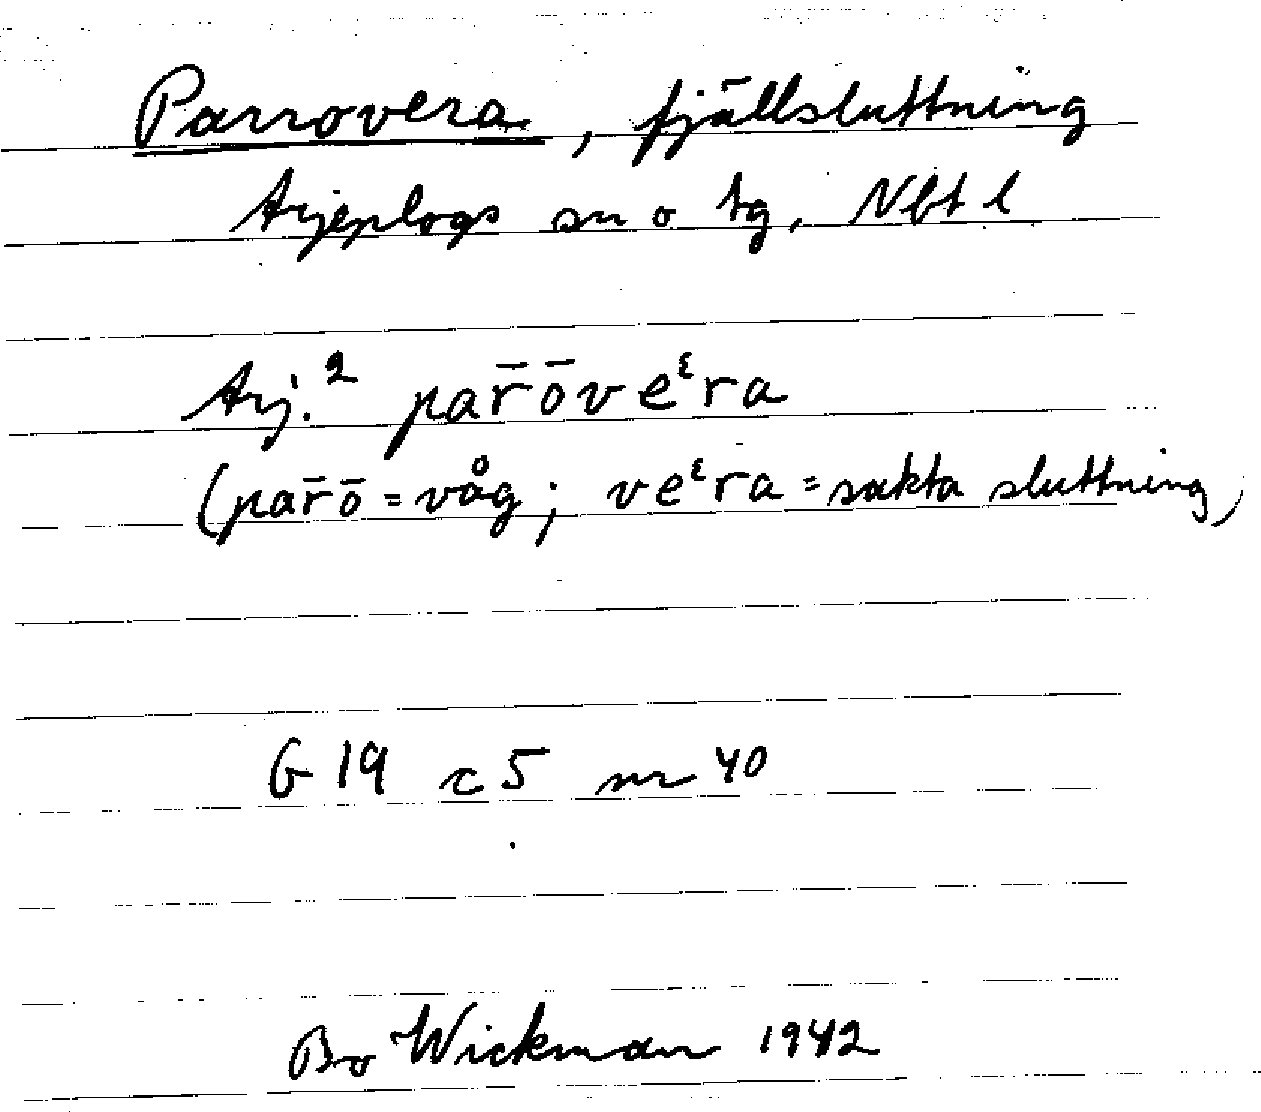 Parrovera, fjällsluttning
Arjeplogs sn o tg, Nbt l
Arj.² par̄ōveᶓra
(par̄ō = våg; veᶓra = sakta sluttning)
G 19 c 5 nr 40
Bo Wickman 1942